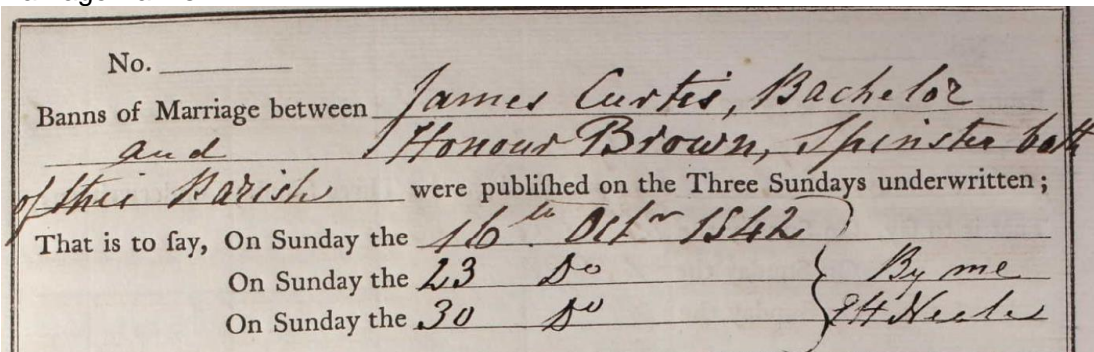 No.
Banns of Marriage between James Curtis, Bachelor
and Honour Brown, Spinster both
of this Parish were publiſhed on the Three Sundays underwritten;
That is to ſay, On Sunday the 16th. Octr 1842
On Sunday the 23 Do By me
On Sunday the 30 Do